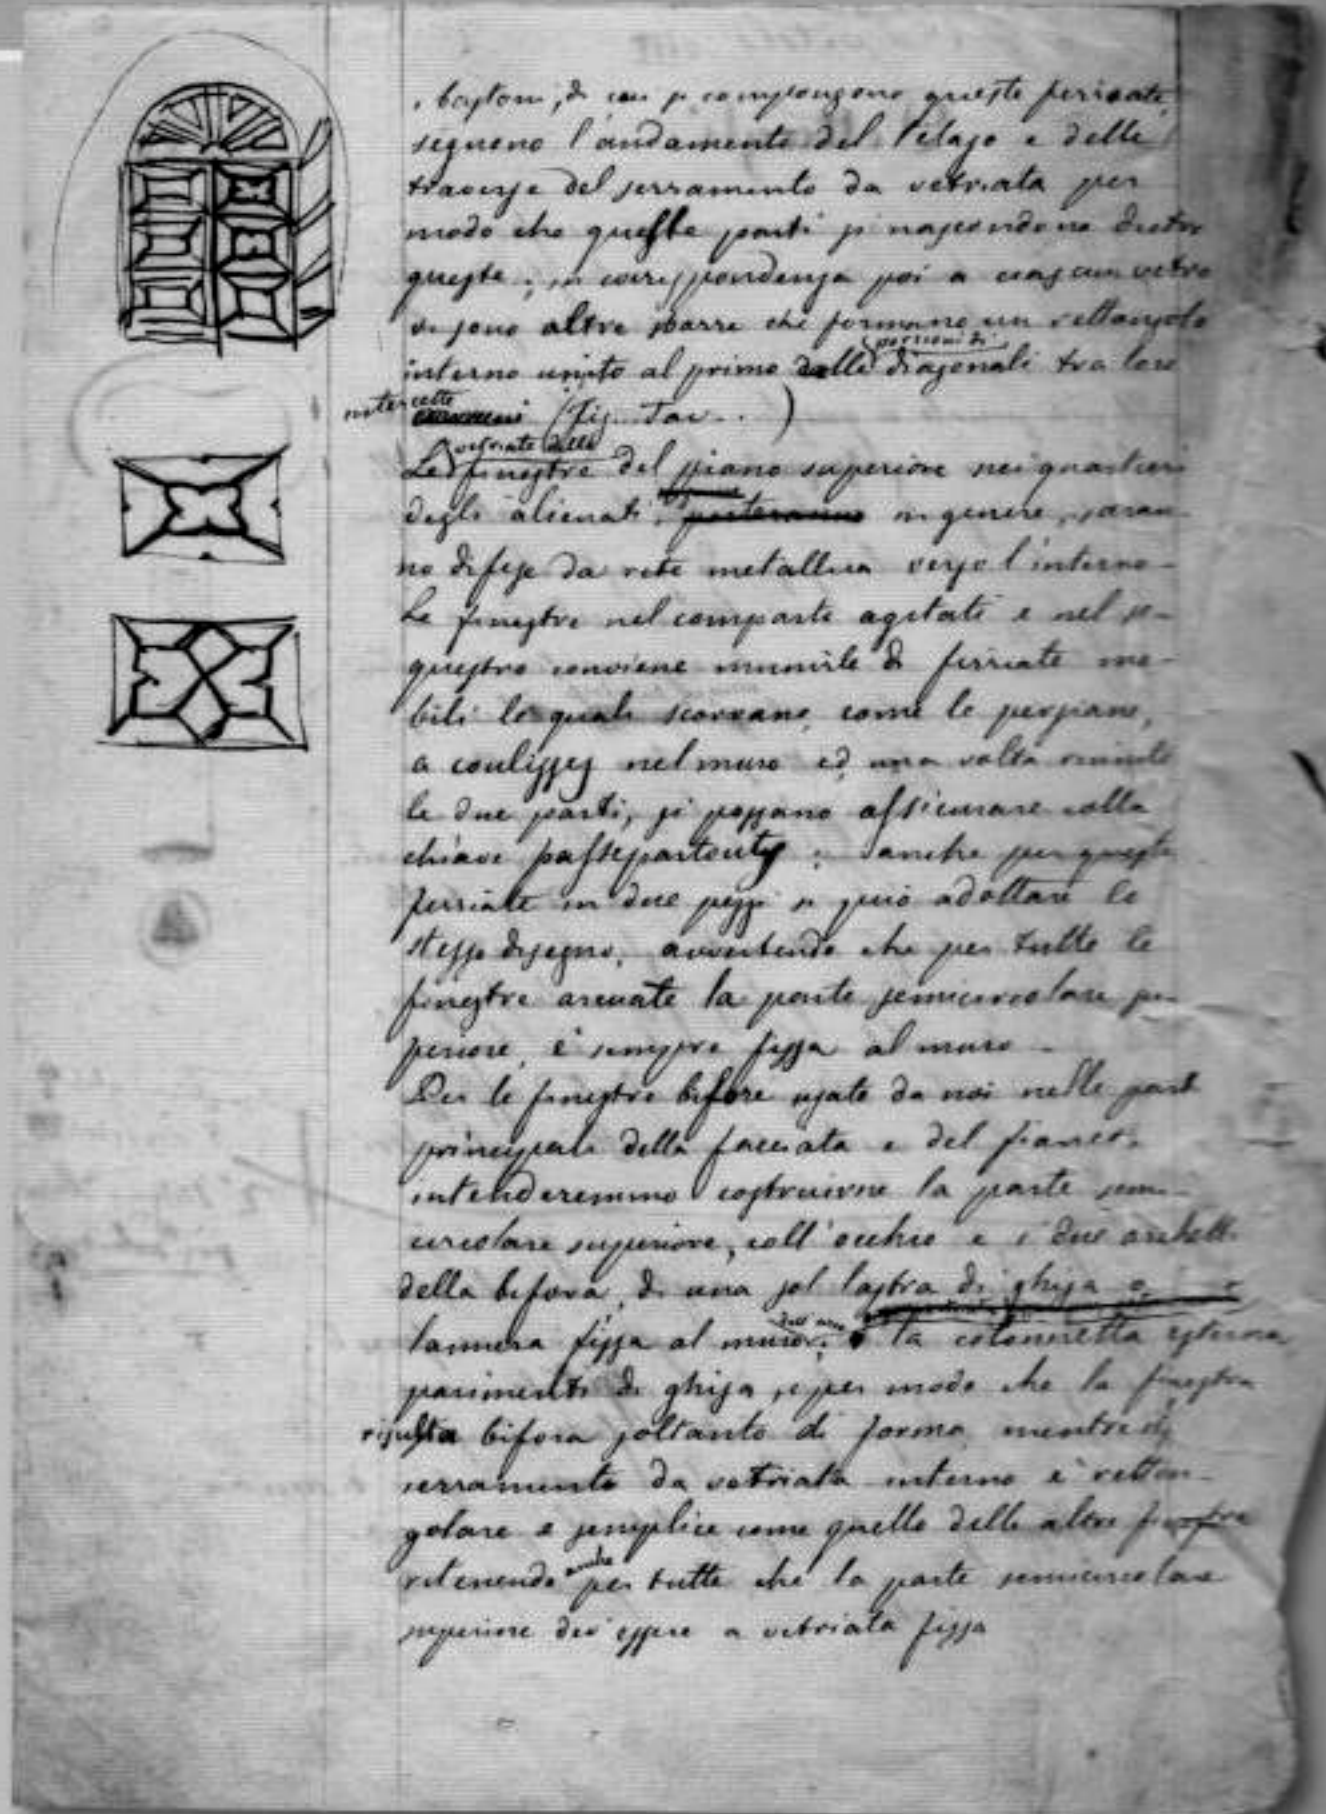 i bastoni, di cui si compongono queste ferriate,
seguono l'andamento del telajo e delle
traverse del serramento da vetriata per
modo che queste parti si nascondono dietro
queste; in corrispondenza poi a ciascun vetro
vi sono altre sbarre che formano un rettangolo
porzioni di
interno unito al primo dalle diagonali tra loro
intercette (fig. Tav. . )
vetriate delle
Le finestre del piano superiore nei quartieri
degli alienati, porteranno in genere, saran-
no difese da rete metallica verso l'interno-
Le finestre nel comparto agitati e nel se-
questro conviene munirle di ferriate mo-
bili le quali scorrano, come le persiane,
a coulisses nel muro ed una volta riunite
le due parti, si possano assicurare colla
chiave passepartouts; anche per queste
ferriate in due pezzi si può adottare lo
stesso disegno, avvertendo che per tutte le
finestre arcuate la parte semicircolare su-
periore, è sempre fissa al muro -
Per le finestre bifore usate da noi nelle parti
principali della facciata e del fianco,
intenderemmo costruirne la parte semi-
circolare superiore, coll'occhio e i due archetti
della bifora, di una sol lastra di ghisa o
dell'arco
lamiera fissa al muro; la colonnetta esterna
parimenti di ghisa, e per modo che la finestra
risulta bifora soltanto di forma, mentre il
serramento da vetriata interno è rettan-
golare e semplice come quello delle altre finestre
anche
ritenendo per tutte che la parte semicircolare
superiore dev'essere a vetriata fissa